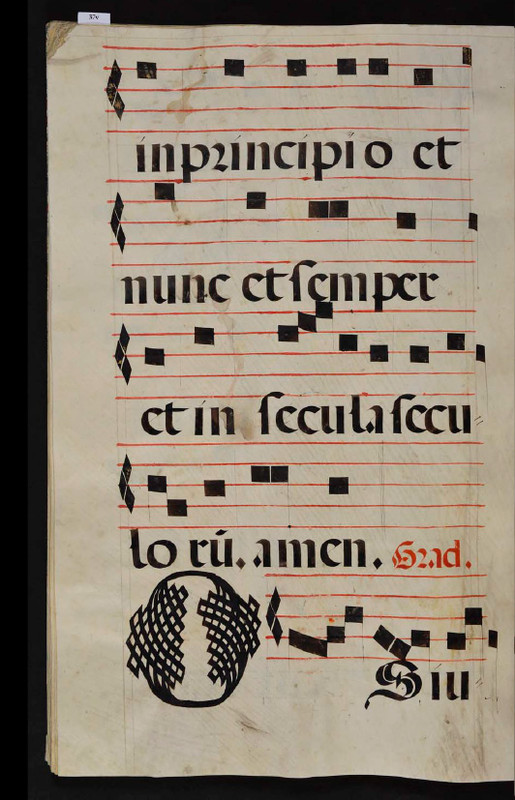 37v
inprincipio et
nunc et semper
et in secula secu
lorū. amen. Grad.
O Siu